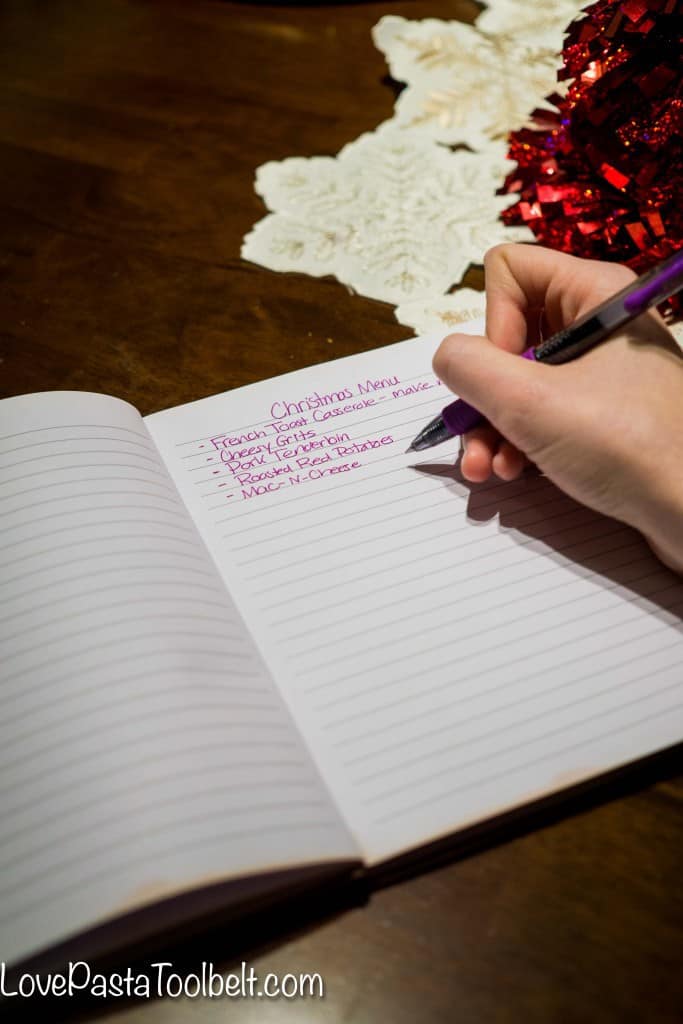 Christmas Menu
- French Toast Casserole - make
- Cheesy Grits
- Pork Tenderloin
- Roasted Red Potatoes
- Mac-N-Cheese
LovePastaToolbelt.com